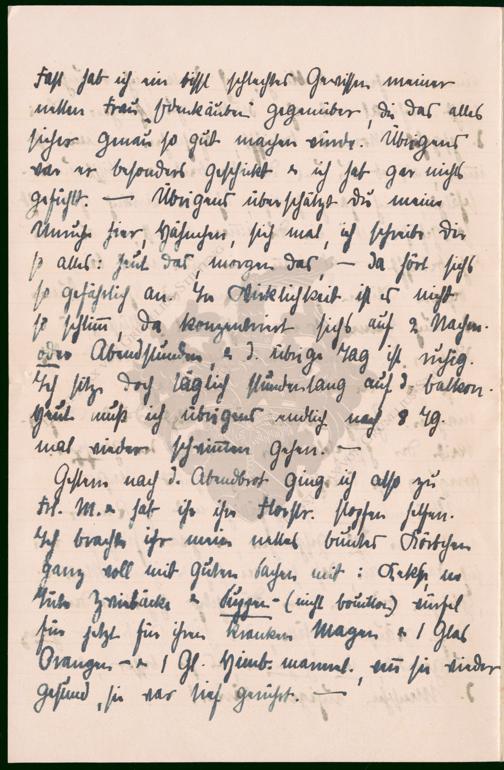 Fast hab ich ein bissl schlechtes Gewissen meiner
netten Frau gegenüber, die das alles
sicher genau so gut machen würde. Übrigens
war er besonders geschickt & ich hab gar nichts
gefühlt. — Übrigens überschätzt Du meine
Unruhe hier, Hähnchen, sieh mal, ich schreibe Dir
so alles: heut das, morgen das, — da hört sichs
so gefährlich an. In Wirklichkeit ist es nicht
so schlimm, da konzentriert sichs auf 2 Nachm.
oder Abendstunden, & d. übrige Tag ist ruhig.
Ich sitze doch täglich stundenlang auf d. balkon.
Heut muß ich übrigens endlich nach 8 Tg.
mal wieder schwimmen gehen. —
Gestern nach d. Abendbrot ging ich also zu
Frl. M. & hab ihr ihre stopfen helfen.
Ich brachte ihr mein nettes buntes Körbchen
ganz voll mit guten Sachen mit : Keks,
Tube Zwiebäcke & Suppen- (nicht bouillon) würfel
für jetzt für ihren kranken Magen & 1 Glas
Orangen - & 1 Gl. Himb. marmel., wenn sie wieder
gesund, sie war tief gerührt. —